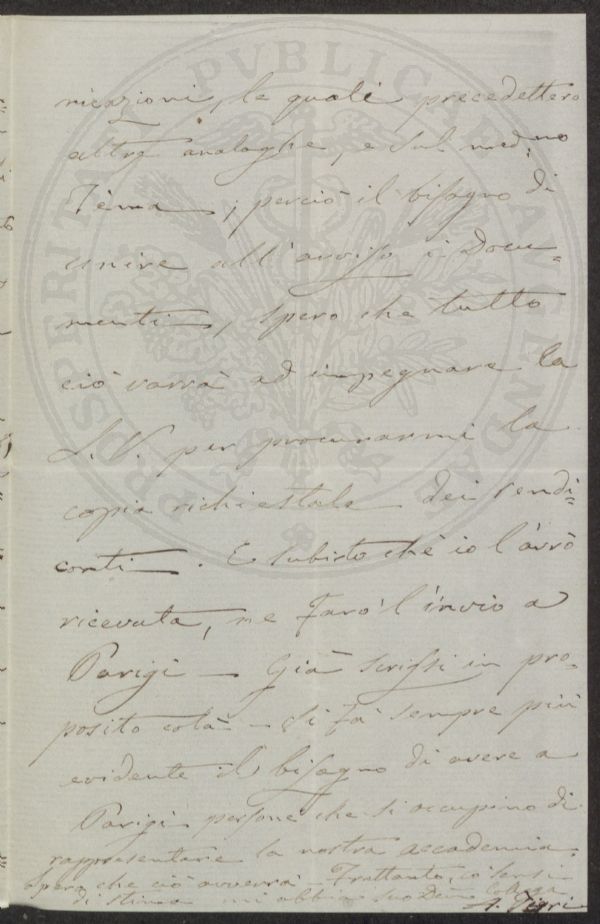 nicazioni, le quali precedettero
altre analoghe, e sul med:mo
Tema; perciò il bisogno di
unire all'avviso i Docu=
menti —, spero che tutto
ciò varrà ad impegnare la
S. V. per procurarmi la
copia richiestale dei rendi=
conti —. E subito chè io l'avrò
ricevuta, ne farò l'invio a
Parigi — Già scrissi in pro=
posito colà — Si fà sempre più
evidente il bisogno di avere a
Parigi persone che si occupino di
rappresentare la nostra accademia.
Spero che ciò avverrà — Frattanto, co' sensi
di stima mi abbia suo Dev. Collega
A. Tigri
PROSPERITATI PVBLICAE AVGENDAE